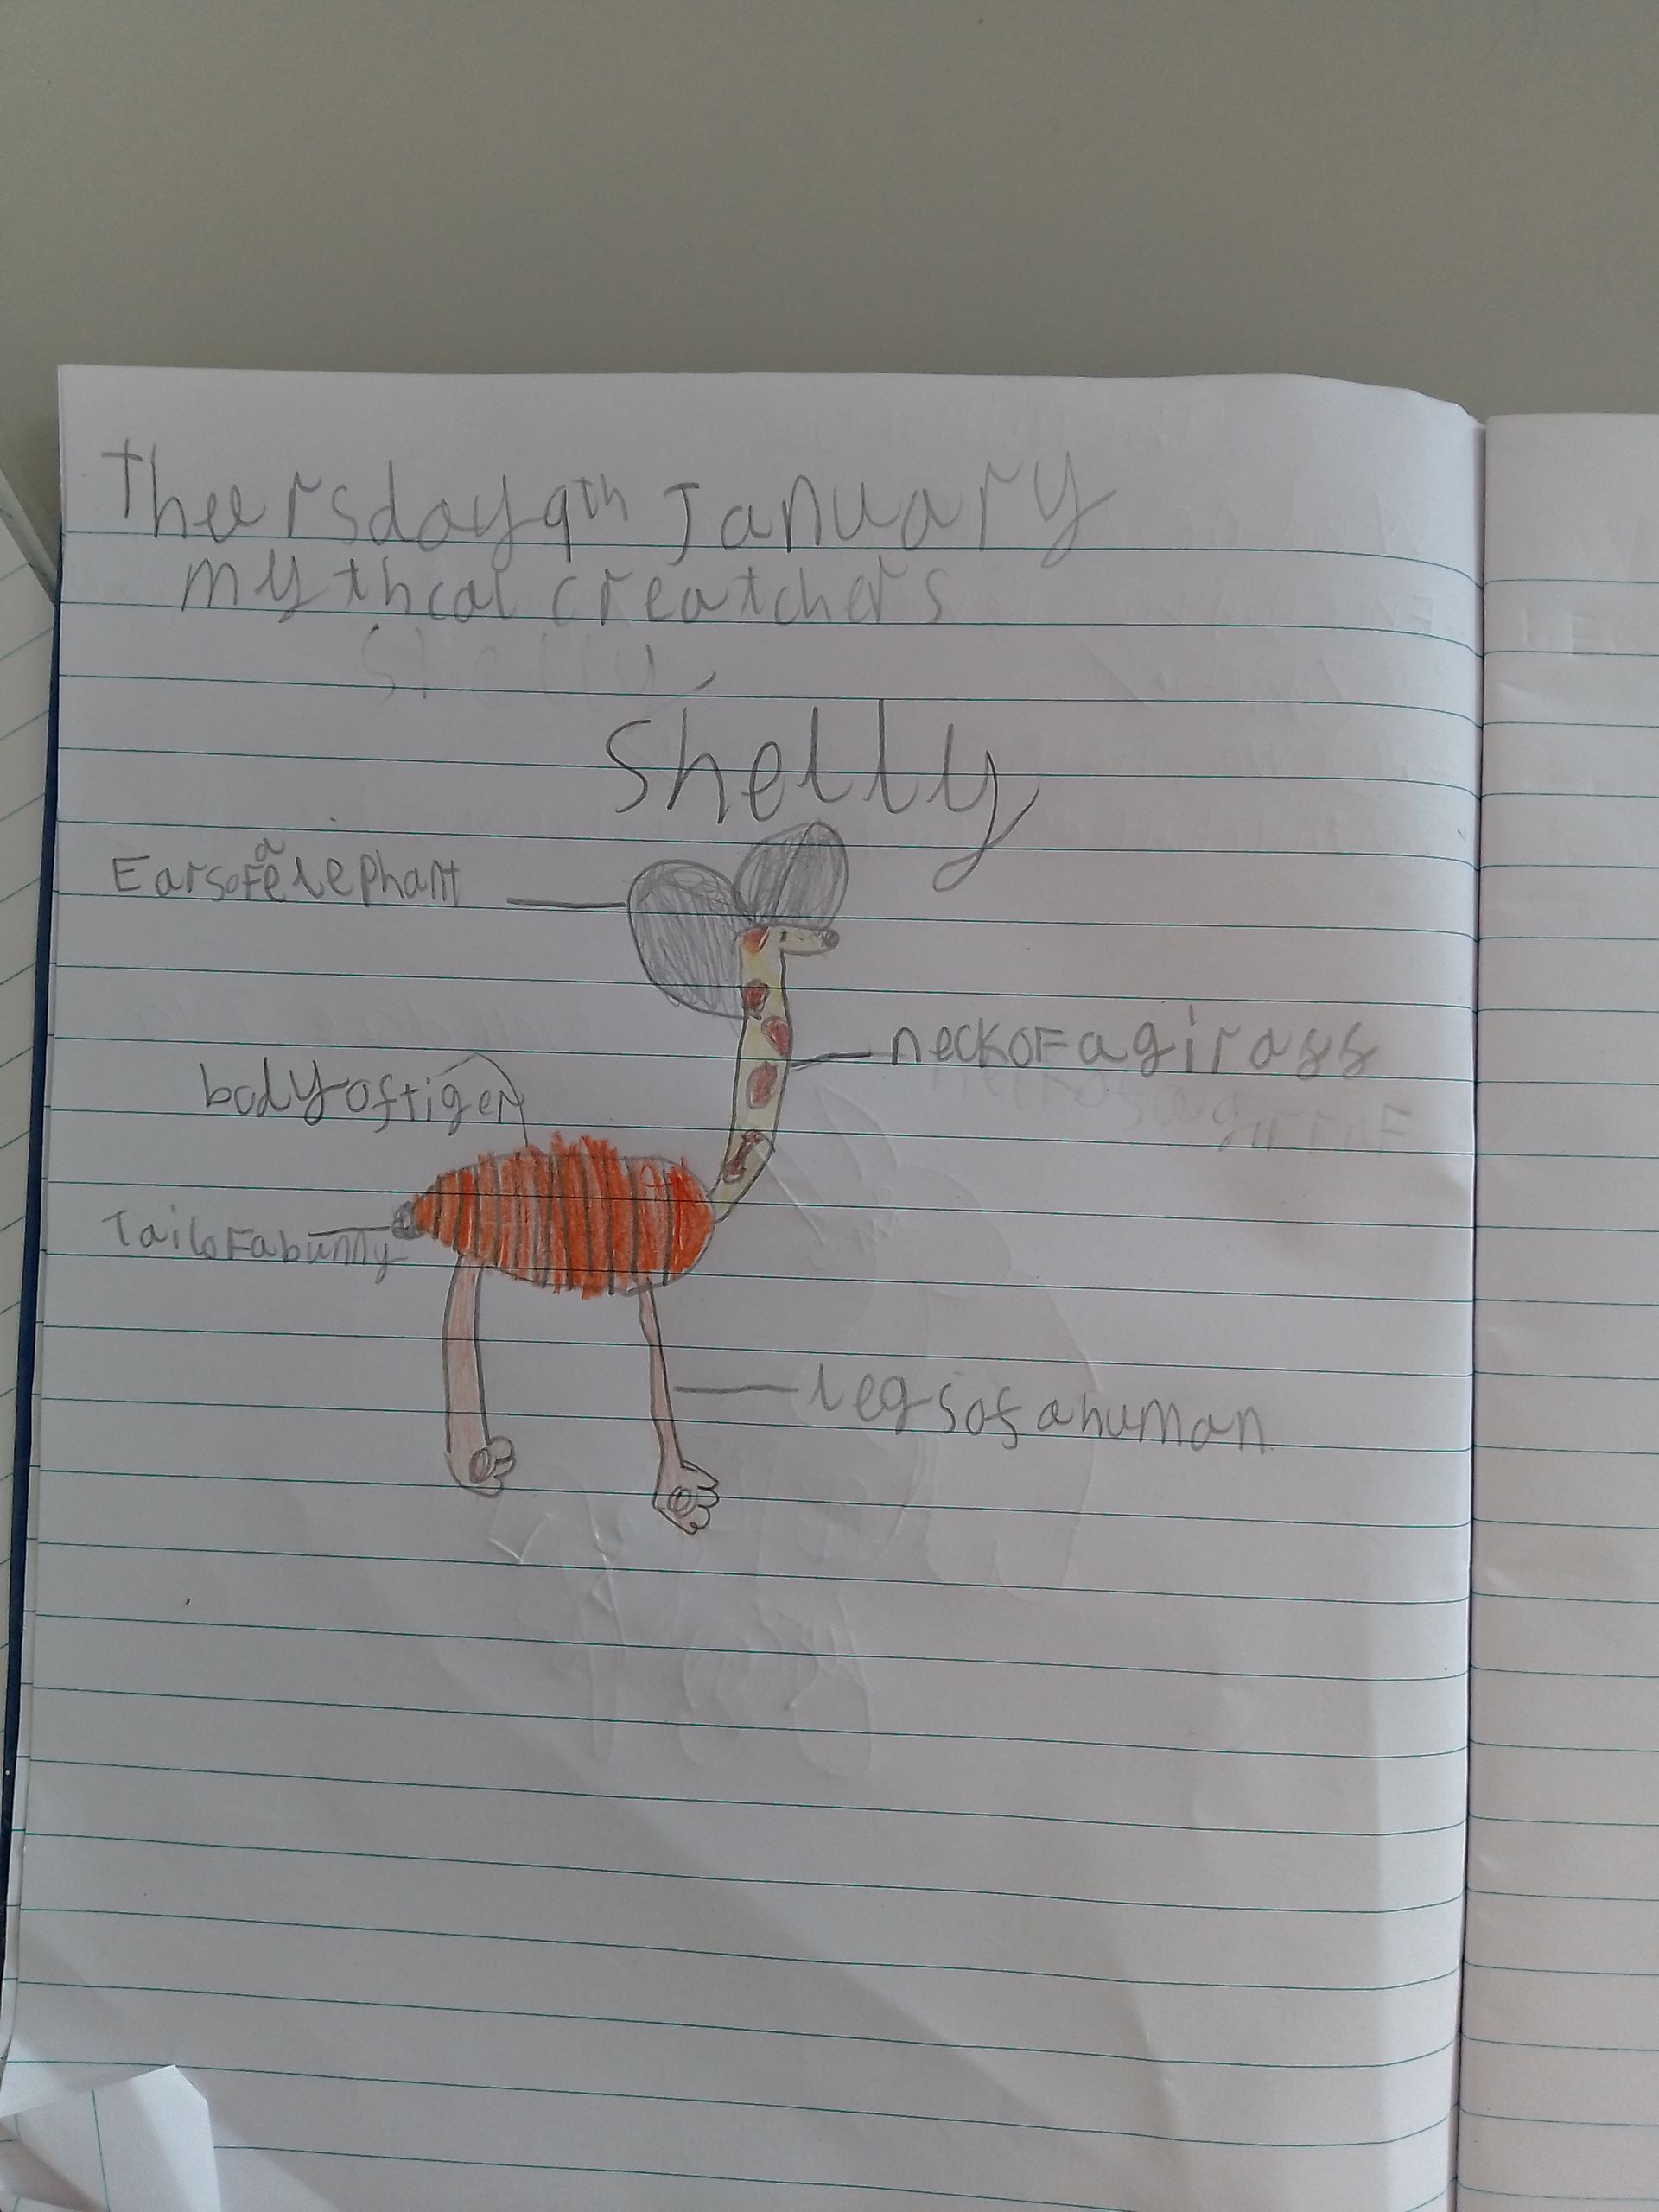 Theersday 9th January
mythcal creatchers
Shelly
Shelly
Ears of a elephant
neck of a girass
body of tiger
Tail of a bunny
legs of a human